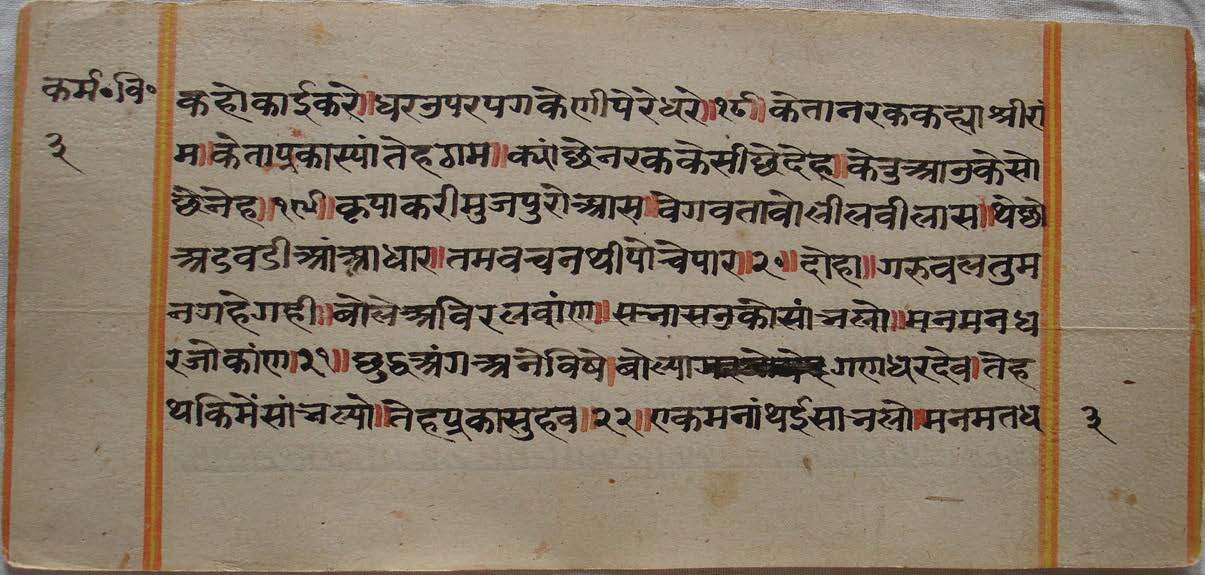 कर्म॰वि॰
३
कहोकाईकरे॥धरउपरपगकेणीपेरेधरे॥१८॥केतानरककह्याश्रीरां
म॥केताप्रकास्यांतेहठाम॥क्यांछेनरककेसीछेदेह॥केतुआउकेसो
छेनेह॥१९॥कृपाकरीमुजपुरोआस॥वेगवतावोलीलवीलास॥थेछो
अडवडीआंआधार॥तमवचनथीपोचेपार॥२०॥दोहा॥गरुवलतुम
नगहेगही॥बोलेअविरलवांण॥सनासउकोसांनलो॥मनमनध
रजोकांण॥२१॥छुद्वअंगअनेविषे॥बोल्यागणधरदेव॥तेह
थकिमेंसांनल्यो॥तेहप्रकासुहव॥२२॥एकमनांथईसानलो॥मनमतध
३